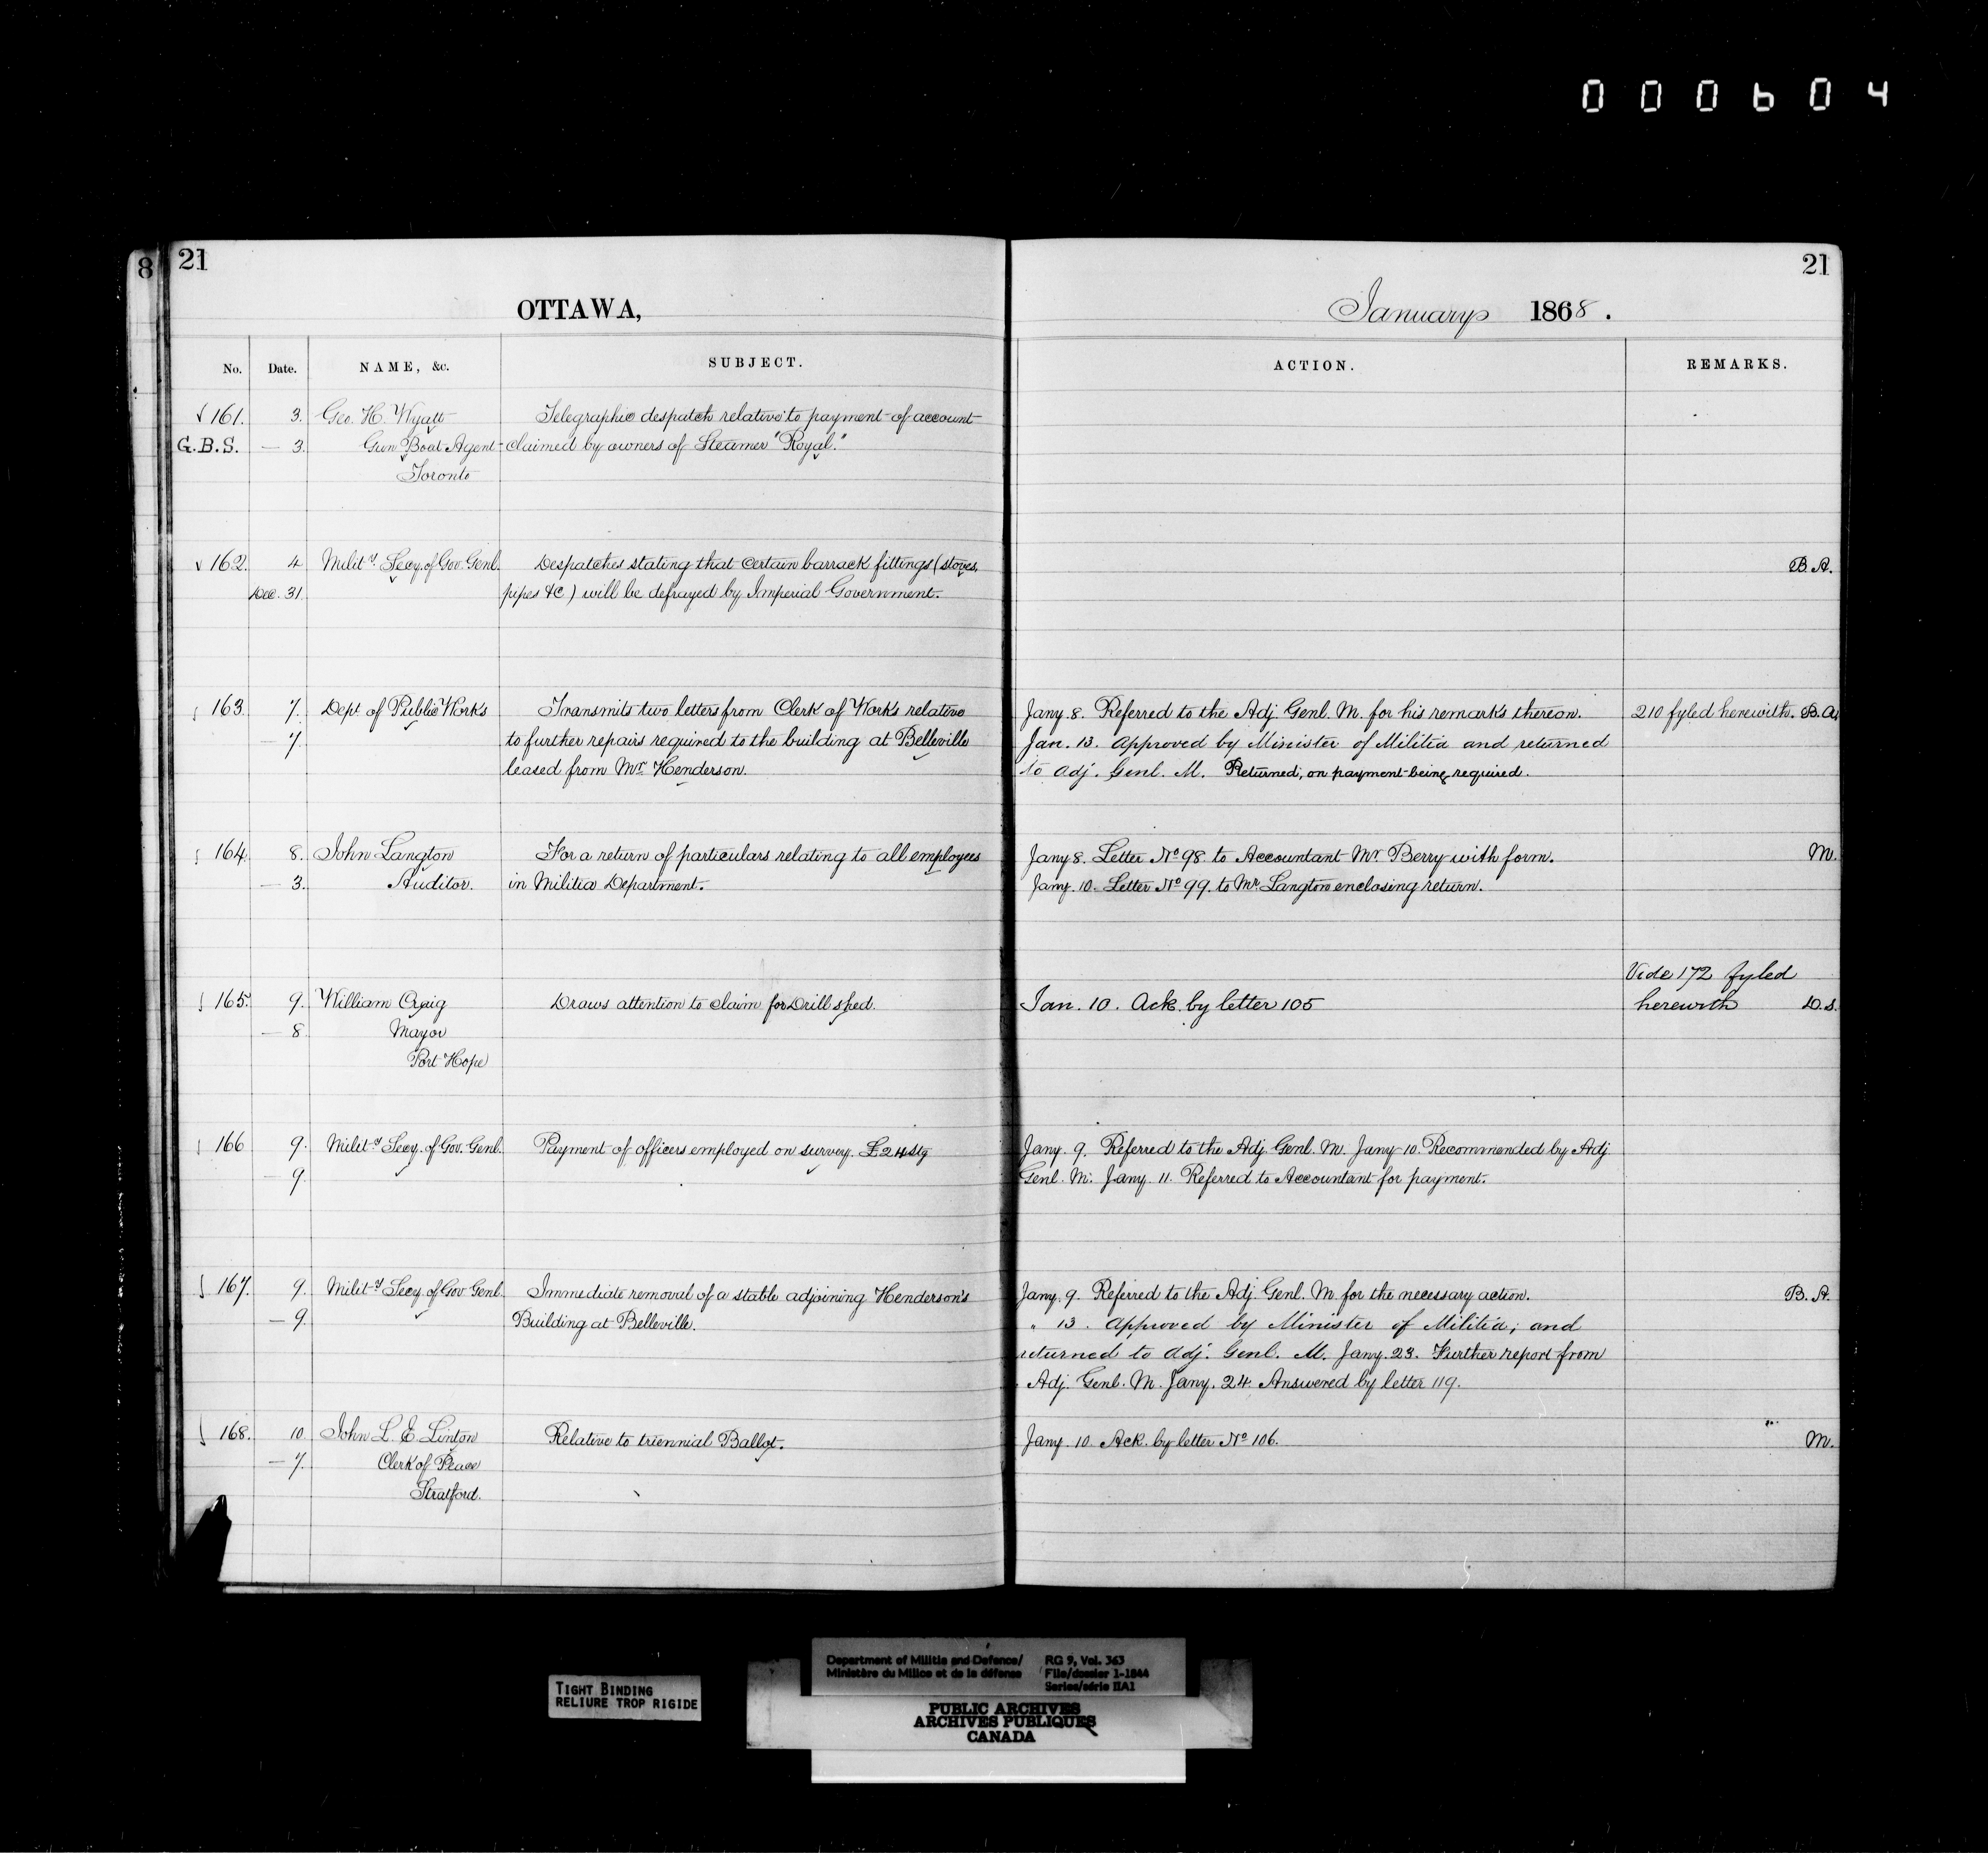 000604
8 21
21
OTTAWA,
January 1868.
No. Date. NAME, &c. SUBJECT.
ACTION. REMARKS.
161. 3. Geo. H. Wyatt Telegraphic despatch relative to payment of account
G.B.S. — 3. Gun Boat Agent claimed by owners of Steamer "Royal."
Toronto
162. 4 Mility. Secy. of Gov. Genl. Despatches stating that certain barrack fittings (stoves, B.A.
Dec. 31. pipes &c) will be defrayed by Imperial Government.
163. 7. Dept of Public Works Transmits two letters from Clerk of Works relative Jany. 8. Referred to the Adj. Genl. M. for his remarks thereon. 210 fyled herewith. B.A.
— 7. to further repairs required to the building at Belleville Jan. 13. Approved by Minister of Militia and returned
leased from Mr. Henderson. to Adj. Genl. M. Returned, on payment being required.
164. 8. John Langton For a return of particulars relating to all employees Jany 8. Letter No 98 to Accountant Mr Berry with form. M.
— 3. Auditor. in Militia Department. Jany. 10. Letter No 99. to Mr. Langton enclosing return.
Vide 172 fyled
165. 9. William Craig Draws attention to claim for Drill shed. Jan. 10. Ack. by letter 105 herewith D.S.
— 8. Mayor
Port Hope
166 9. Mility Secy. of Gov. Genl. Payment of officers employed on survey. £24 stg Jany. 9. Referred to the Adj. Genl. M. Jany 10. Recommended by Adj.
— 9. Genl. M. Jany. 11. Referred to Accountant for payment.
167. 9. Mility Secy. of Gov. Genl. Immediate removal of a stable adjoining Henderson's Jany. 9. Referred to the Adj. Genl. M. for the necessary action. B.A.
— 9. Building at Belleville. " 13. Approved by Minister of Militia; and
returned to Adj. Genl. M. Jany. 23. Further report from
Adj. Genl. M. Jany. 24. Answered by letter 119.
168. 10. John L. E. Linton Relative to triennial Ballot. Jany. 10. Ack. by letter No 106. M.
— 7. Clerk of Peace
Stratford.
Department of Militia and Defence/ RG 9, Vol. 363
Ministère du Milice et de la défense File/dossier 1-1844
Series/série IIA1
TIGHT BINDING
RELIURE TROP RIGIDE
PUBLIC ARCHIVES
ARCHIVES PUBLIQUES
CANADA